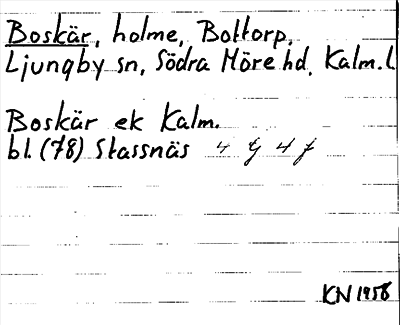 Boskär, holme, Bottorp,
Ljungby sn, Södra Möre hd, Kalm. l
Boskär ek Kalm.
bl. (78) Stassnäs 4 G 4 f
KN 1958